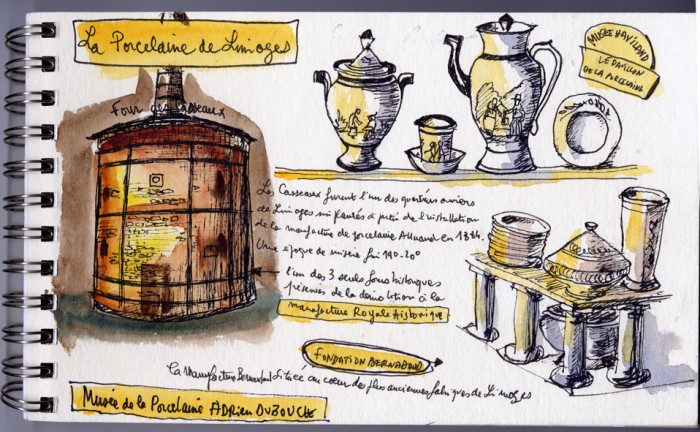 La Porcelaine de Limoges
Four des Casseaux
MUSEE HAVILAND
LE PAVILLON
DE LA PORCELAINE
Les Casseaux furent l'un des quartiers ouvriers
de Limoges à de l'installation
de la manufacture de porcelaine en
Une époque de
l'un des 3 seuls fours historiques
préservés de la démolition à la
manufacture Royale historique
FONDATION BERNARDAUD
La manufacture Bernardaud située au coeur des plus anciennes fabriques de Limoges
Musée de la Porcelaine ADRIEN DUBOUCHE